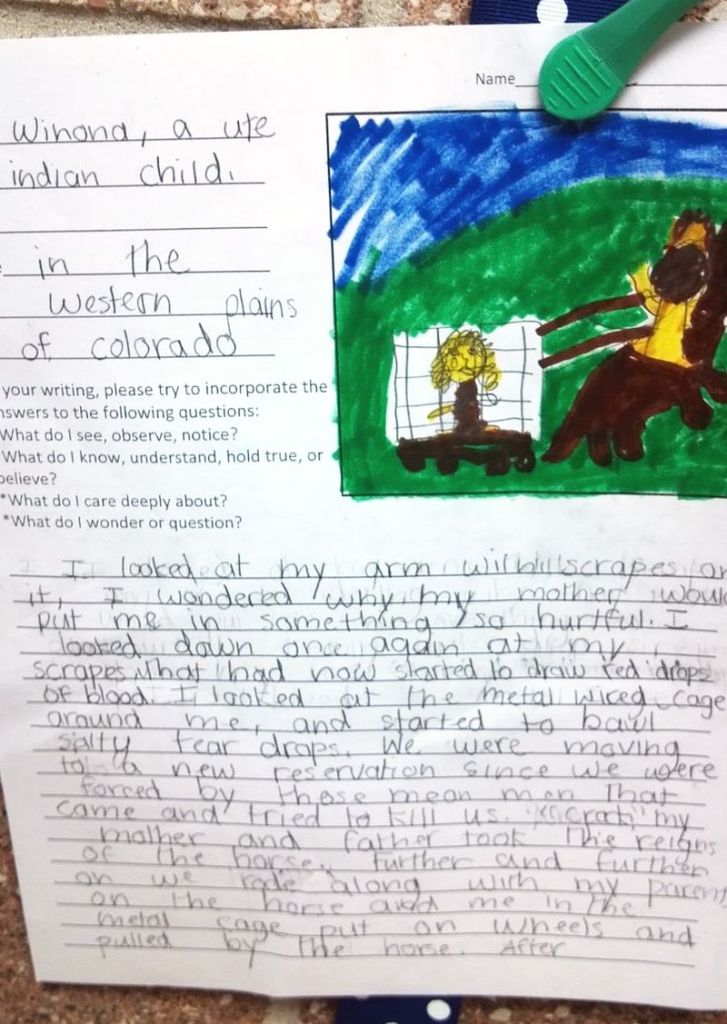 Name
Winona, a ute
indian child.
in the
western plains
of colorado
your writing, please try to incorporate the
nswers to the following questions:
What do I see, observe, notice?
What do I know, understand, hold true, or
believe?
*What do I care deeply about?
*What do I wonder or question?
I looked at my arm with scrapes on
it, I wondered why my mother would
put me in something so hurtful. I
looked down once again at my
scrapes that had now started to draw red drops
of blood. I looked at the metal wired cage
around me, and started to bawl
salty tear drops. We were moving
to a new reservation since we were
forced by those mean men That
came and tried to kill us. my
mother and father took The reigns
of the horse. further and further
on we rode along with my parent
on the horse and me in the
metal cage put on wheels and
pulled by the horse. After